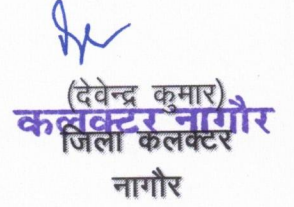 (देवेन्द्र कुमार)
कलक्टर नागौर
जिला कलक्टर
नागौर